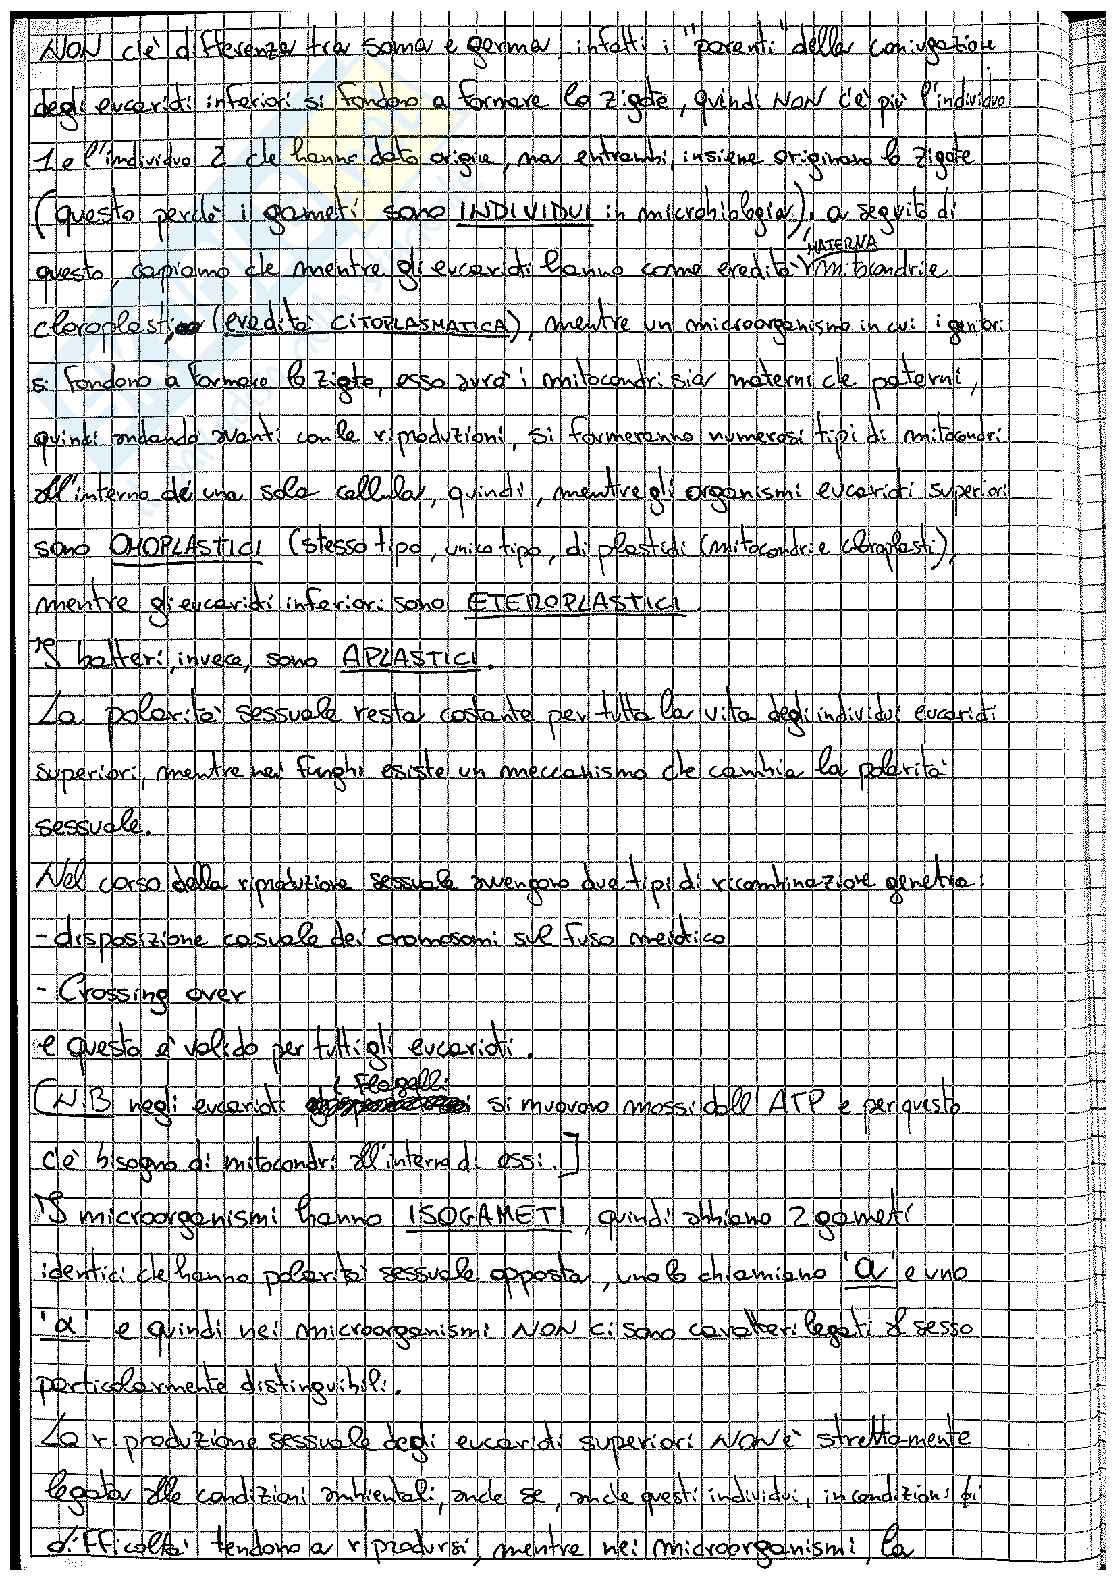 NON c'è differenza tra soma e germa, infatti i "parenti" della coniugazione
degli eucarioti inferiori si fondono a formare lo zigote, quindi NON c'è più l'individuo
1 e l'individuo 2 che hanno dato origine, ma entrambi, insieme originano lo zigote
(questo perchè i gameti sono INDIVIDUI in microbiologia). a seguito di
questo, capiamo che mentre gli eucarioti hanno come eredità MATERNA mitocondri e
cloroplasti (eredità CITOPLASMATICA), mentre un microorganismo in cui i genitori
si fondono a formare lo zigote, esso avrà i mitocondri sia materni che paterni,
quindi andando avanti con le riproduzioni, si formeranno numerosi tipi di mitocondri
all'interno di una sola cellula, quindi, mentre gli organismi eucarioti superiori
sono OMOPLASTICI (stesso tipo, unico tipo, di plastidi (mitocondri e cloroplasti),
mentre gli eucarioti inferiori sono ETEROPLASTICI
I batteri, invece, sono APLASTICI.
La polarità sessuale resta costante per tutta la vita degli individui eucarioti
superiori, mentre nei funghi esiste un meccanismo che cambia la polarità
sessuale.
Nel corso della riproduzione sessuale avvengono due tipi di ricombinazione genetica:
- disposizione casuale dei cromosomi sul fuso meiotico
- Crossing over
e questo è valido per tutti gli eucarioti.
[N.B negli eucarioti i flagelli si muovono mossi dall'ATP e per questo
c'è bisogno di mitocondri all'interno di essi.]
I microorganismi hanno ISOGAMETI, quindi abbiamo 2 gameti
identici che hanno polarità sessuale opposta, uno lo chiamiamo 'a' e uno
'α' e quindi nei microorganismi NON ci sono caratteri legati al sesso
particolarmente distinguibili.
La riproduzione sessuale degli eucarioti superiori NON è strettamente
legata alle condizioni ambientali, anche se, anche questi individui, in condizioni di
difficoltà tendono a riprodursi, mentre nei microorganismi, la